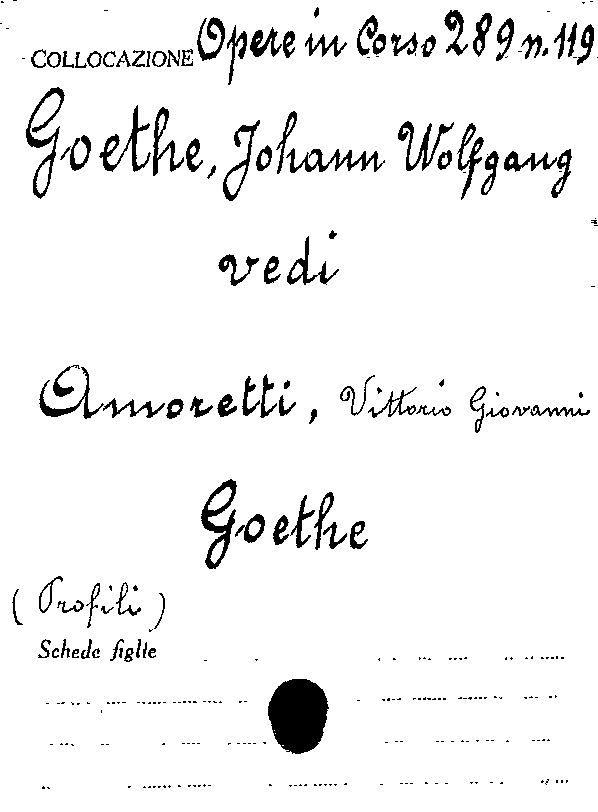 COLLOCAZIONE Opere in Corso 289 n. 119
Goethe, Johann Wolfgang
vedi
Amoretti, Vittorio Giovanni
Goethe
(Profili)
Schede figlie